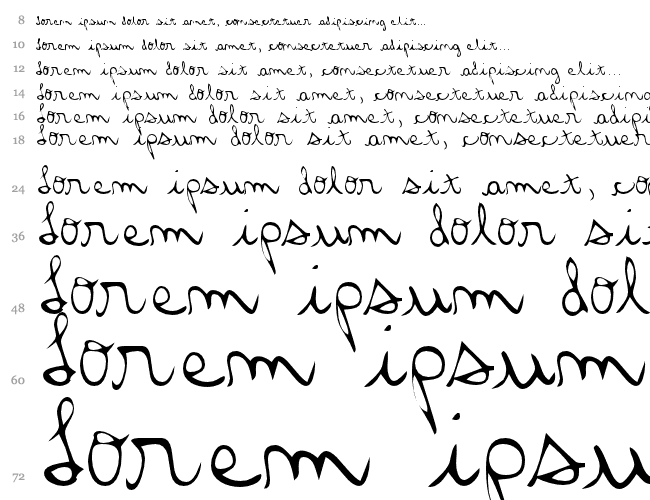 8 Lorem ipsum dolor sit amet, consectetuer adipiscing elit...
10 Lorem ipsum dolor sit amet, consectetuer adipiscing elit...
12 Lorem ipsum dolor sit amet, consectetuer adipiscing elit...
14 Lorem ipsum dolor sit amet, consectetuer adipiscing
16 Lorem ipsum dolor sit amet, consectetuer adipi
18 Lorem ipsum dolor sit amet, consectetuer
24 Lorem ipsum dolor sit amet, co
36 Lorem ipsum dolor sit
48 Lorem ipsum dol
60 Lorem ipsum
72 Lorem ipsu